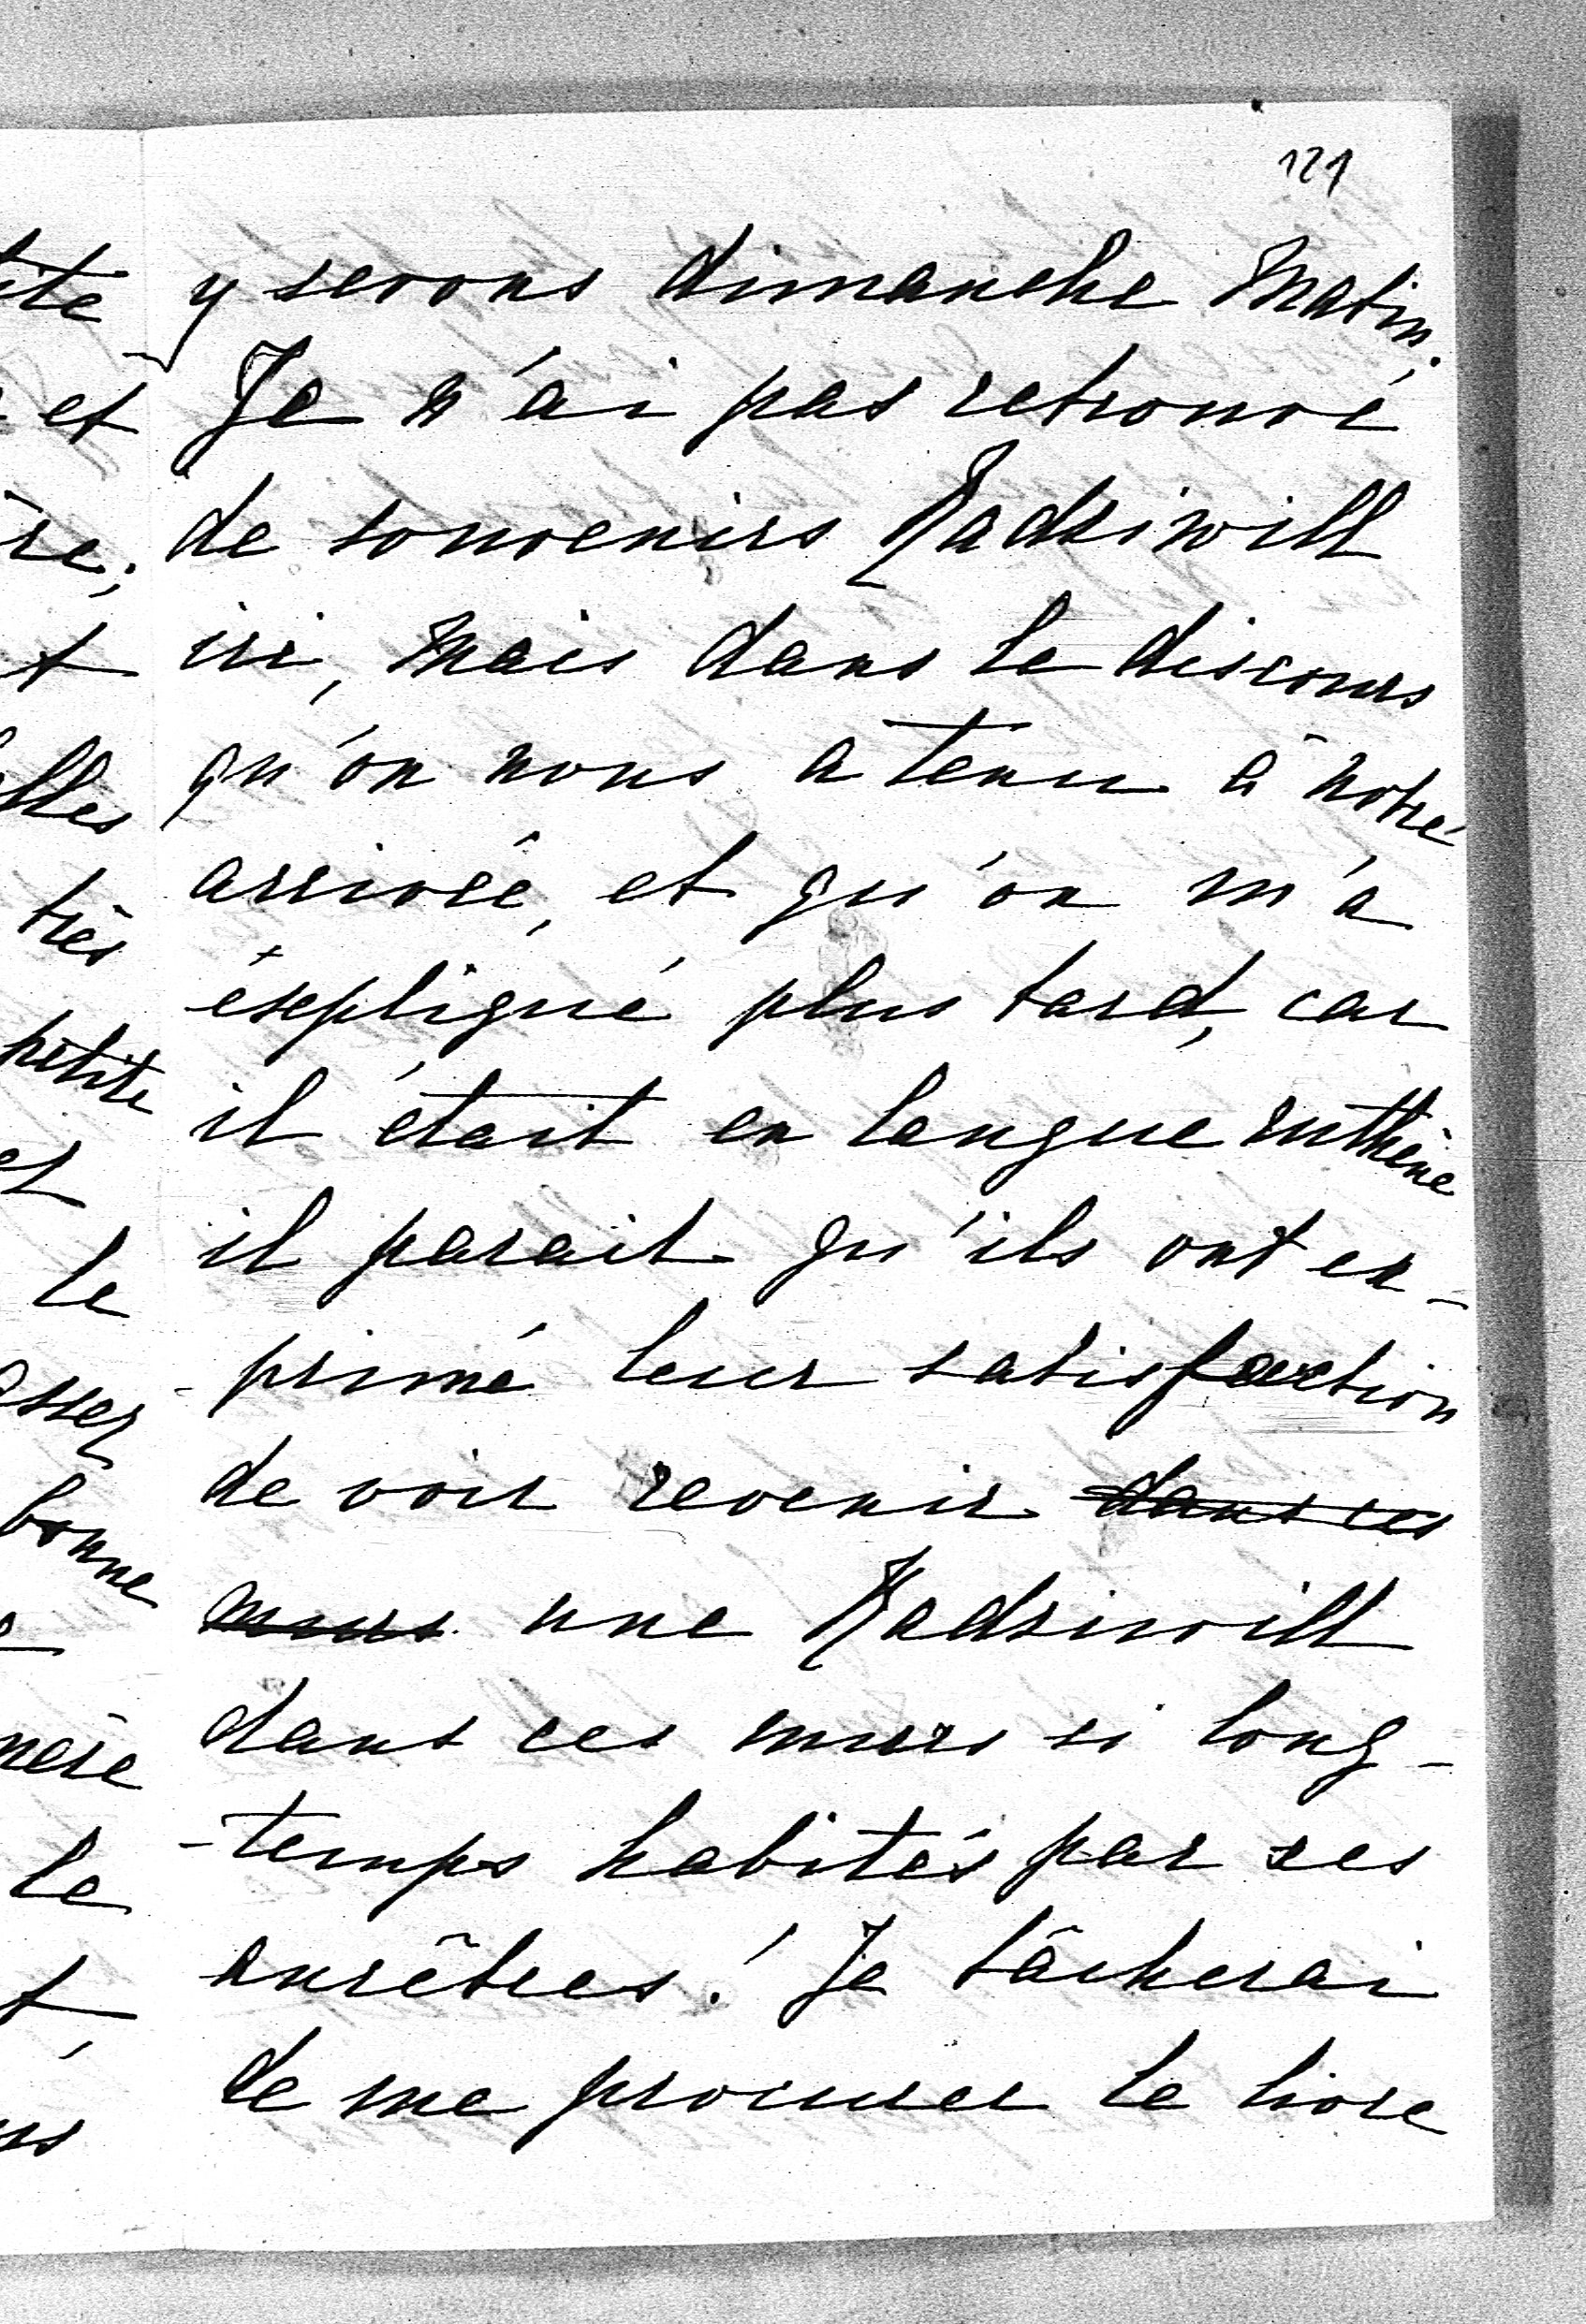 121
y serons dimanche matin.
Je n'ai pas retrouvé
de souvenirs Radziwill
ici, mais dans le discours
qu'on nous a tenu à notre
arrivée, et qu'on m'a
éxepliqué plus tard, car
il était en langue ruthène
il parait qu'ils ont ex-
-primé leur satisfaction
de voir revenir dans ces
murs une Radziwill
dans ces murs si long-
-temps habités par ses
ancêtres! Je tâcherai
de me procurer le livre
et
très
petite
le
bonne
le